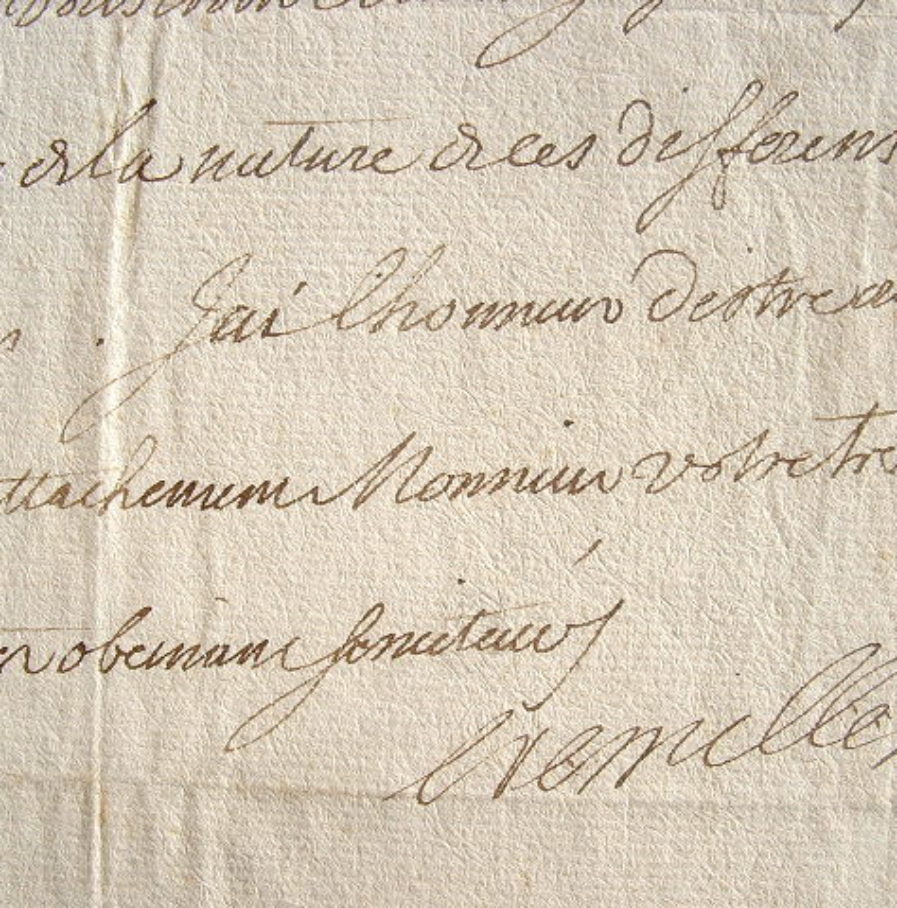 de la nature de ces differens
Jai lhonneur destre a
attachement Monsieur votre tre
obeissant serviteur
Cremilles